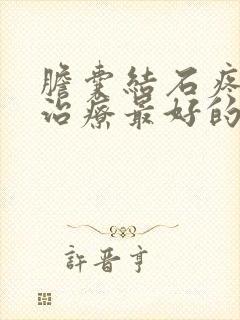 膽囊結石疼
治療最好的
許晋亨